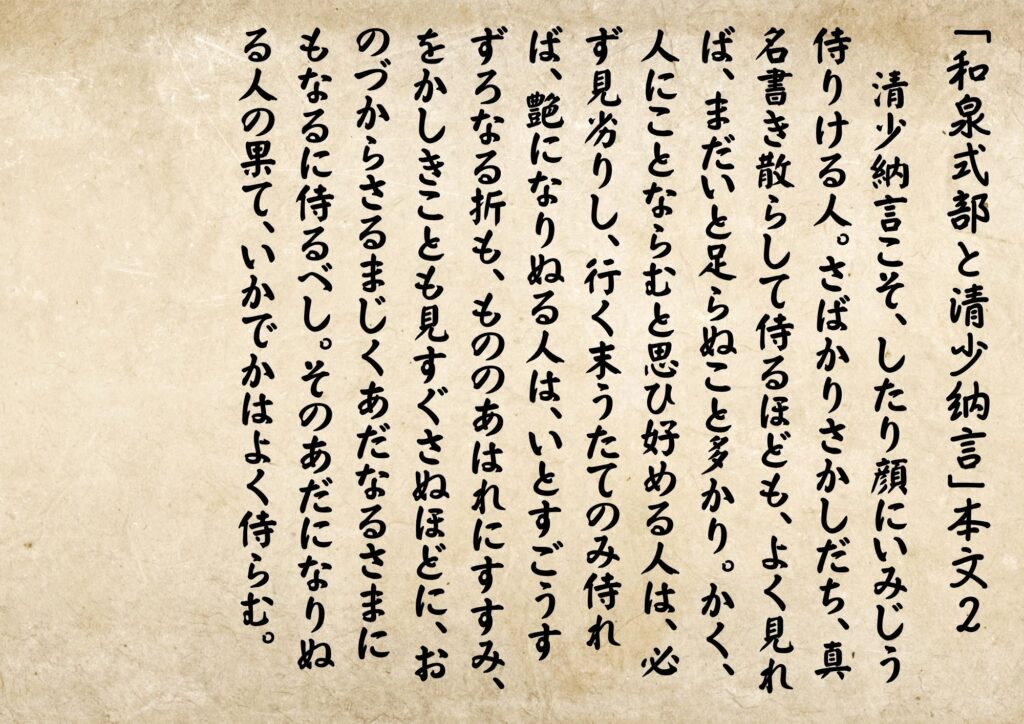 「和泉式部と清少納言」本文2
清少納言こそ、したり顔にいみじう
侍りける人。さばかりさかしだち、真
名書き散らして侍るほども、よく見れ
ば、まだいと足らぬこと多かり。かく、
人にことならむと思ひ好める人は、必
ず見劣りし、行く末うたてのみ侍れ
ば、艶になりぬる人は、いとすごうす
ずろなる折も、もののあはれにすすみ、
をかしきことも見すぐさぬほどに、お
のづからさるまじくあだなるさまに
もなるに侍るべし。そのあだになりぬ
る人の果て、いかでかはよく侍らむ。